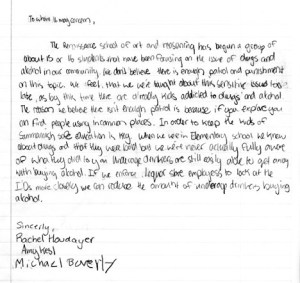 To whom it may concern,
The Renaissance school of art and reasoning has begun a group of
about 15 or 16 students that have been focusing on the issue of drugs and
alcohol in our community. We don't believe there is enough patrol and punishment
on this topic. We feel that we were taught about this sensitive issue too
late, as by this time there are already kids addicted to drugs and alcohol.
The reason we believe there isn't enough patrol is because if you explore you
can find people using in common places. In order to keep the kids of
Sammamish safe education is key. When we were in Elementary school we knew
about drugs and that they were bad but we were never actually fully aware
of what they did to you. Underage drinkers are still easily able to get away
with buying alcohol. If we enforce liquor store employees to look at the
I.D's more closely we can reduce the amount of underage drinkers buying
alcohol.
Sincerely,
Rachel
Amy
Michael Beverly